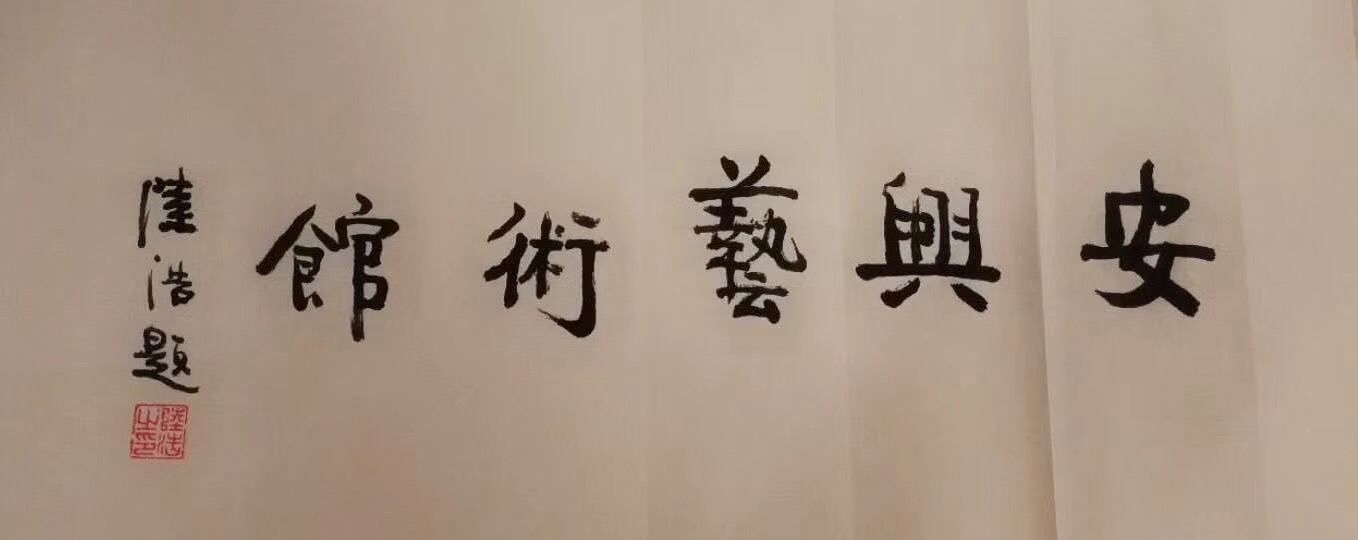 安興藝術館
陸浩題
陸浩之印